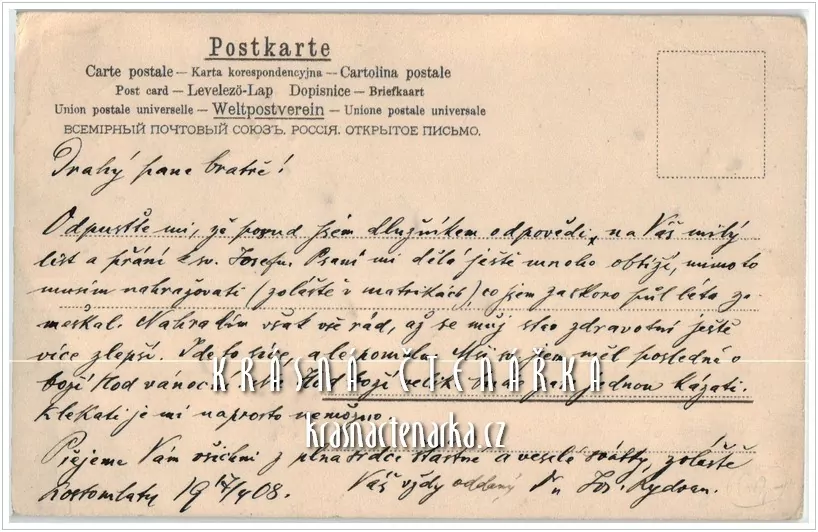 Postkarte
Carte postale — Karta korespondencyjna — Cartolina postale
Post card — Levelező-Lap Dopisnice — Briefkaart
Union postale universelle — Weltpostverein — Unione postale universale
ВСЕМІРНЫЙ ПОЧТОВЫЙ СОЮЗЪ. РОССІЯ. ОТКРЫТОЕ ПИСЬМО.
Drahý pane bratře!
Odpusťte mi, že posud jsem dlužníkem odpovědi na Váš milý
list a přání k sv. Josefu. Psaní mi dělá ještě mnoho obtíží, mimo to
musím nahražovati (zvláště v matrikách), co jsem za skoro půl léta za-
meškal. Nahradím však vše rád, až se můj stav zdravotní ještě
více zlepší. Jde to sice, ale pomalu. Mši sv. jsem měl posledně o
boží hod vánoční jednou kázati.
Klekati je mi naprosto nemožno.
KRÁSNÁ ČTENÁŘKA
krasnactenarka.cz
Přejeme Vám všichni z plna srdce šťastné a veselé svátky, zvláště
Kostomlaty 19 17/4 08. Váš vždy oddaný Jos. Rydvan.